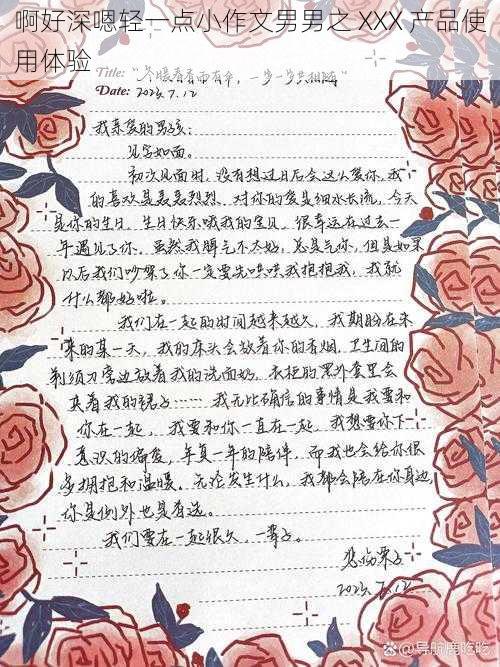 啊好深嗯轻一点小作文男男之 XXX 产品使
用体验
Title: "冬暖春香而有伞，一步一步共相随"
Date: 2023.7.12
我亲爱的男孩：
见字如面。
初次见面时，没有想过日后会这么爱你，我
的喜欢是轰轰烈烈、对你的爱是细水长流，今天
是你的生日，生日快乐哦我的宝贝。很幸运在过去一
年遇见了你。虽然我脾气不太好，总是气你，但是如果
以后我们吵架了你一定要先哄哄我抱抱我，我就
什么都好啦。
我们在一起的时间越来越久，我期盼在未
来的某一天，我的床头会放着你的香烟，卫生间的
剃须刀旁边放着我的洗面奶，衣柜的黑外套里会
夹着我的裙子……我无比确信的事情是我要和
你在一起，我要和你一直在一起，我想要你下
意识的偏爱，年复一年的陪伴，而我也会给你很
多拥抱和温暖。无论发生什么，我都会陪在你身边，
你是例外也是首选。
我们要在一起很久，一辈子。
2023.7.12
@导航鹿吃吃